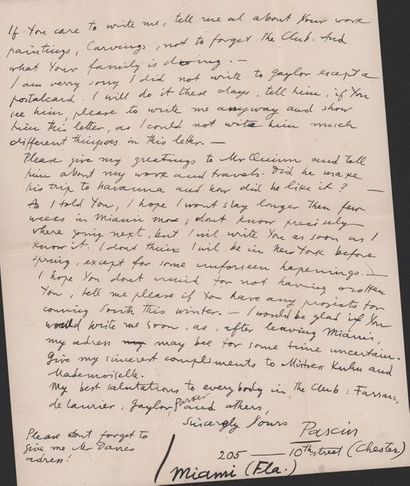 If You care to write me, tell me al about Your work
paintings, Carvings, not to forget the Club. And
what Your family is doing. —
I am verry sorry I did not write to Gaylor except a
postalcard. I will do it these days, tell him, if You
see him, please to write me anyway and show
him this letter, as I could not write him much
different things as in this letter. —
Please give my greetings to Mr Quinn and tell
him about my work and travels. Did he make
his trip to havanna and how did he like it? —
As I told You, I hope I wont stay longer then few
weeks in Miami more; dont know precisely
where going next, but I wil write You as soon as I
know it. I dond think I wil be in New York before
spring, except for some unforseen hapenings. —
I hope You dont mind for not having wrotten
You, tell me please if You have any projects for
coming South this winter. — I would be glad if You
would write me soon, as, after leaving Miami,
my adress may bee for some time uncertain.
Give my sincerest compliments to Mistress Kuhn and
Mademoiselle.
My best salutations to everybody in the Club: Farnau,
de Laurier, Gaylor, Parker and others,
Sincerly Yours
Pascin
205 10th street (Chester)
Miami (Fla.)
Please dont forget to
give me Mr Davies
adress!